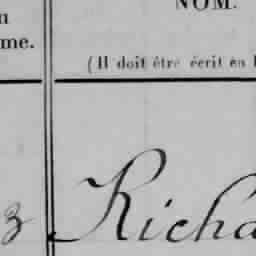 NOM.
me.
(Il doit être écrit en
3 Richa